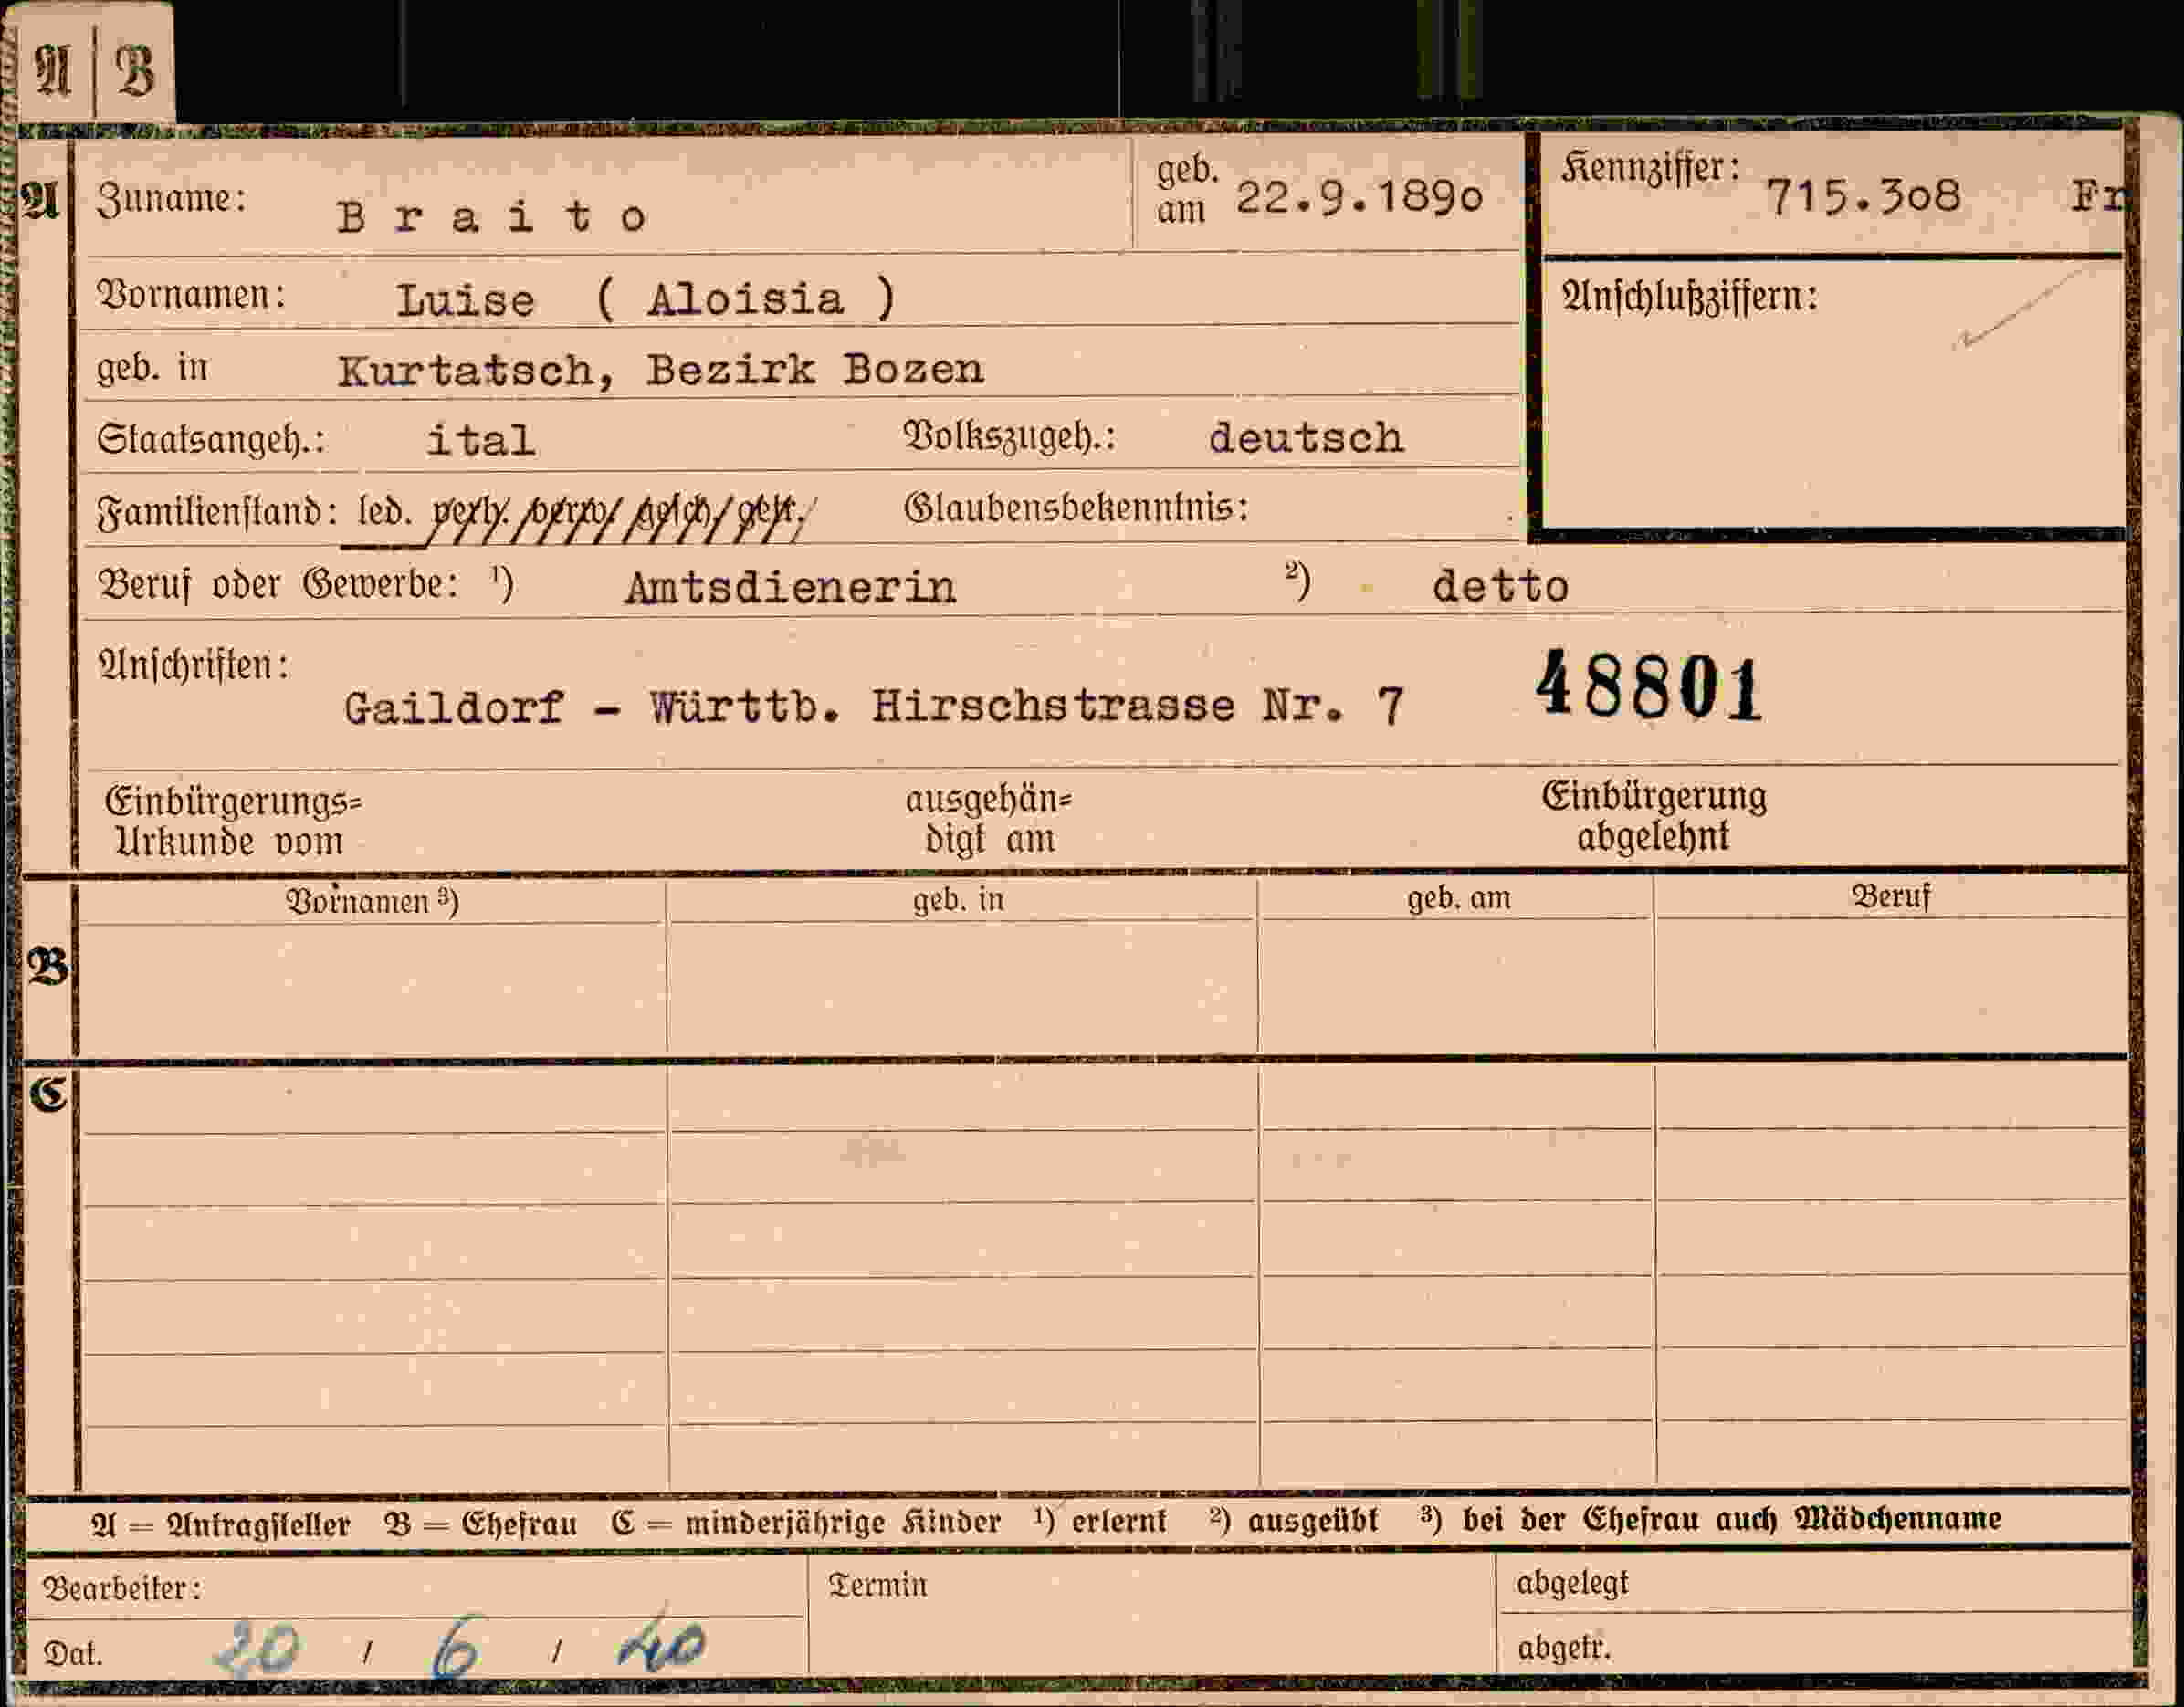 A | B
A Zuname: Braito geb. am 22.9.189o Kennziffer: 715.3o8 Fr
Vornamen: Luise ( Aloisia ) Anschlußziffern:
geb. in Kurtatsch, Bezirk Bozen
Staatsangeh.: ital Volkszugeh.: deutsch
Familienstand: led. verh. verw. gesch. getr. Glaubensbekenntnis:
Beruf oder Gewerbe: ¹) Amtsdienerin ²) detto
Anschriften:
Gaildorf - Württb. Hirschstrasse Nr. 7 48801
Einbürgerungs= Urkunde vom ausgehän= digt am Einbürgerung abgelehnt
Vornamen ³) geb. in geb. am Beruf
B
C
A = Antragsteller B = Ehefrau C = minderjährige Kinder ¹) erlernt ²) ausgeübt ³) bei der Ehefrau auch Mädchenname
Bearbeiter: Termin abgelegt
Dat. 20 / 6 / 40 abgetr.